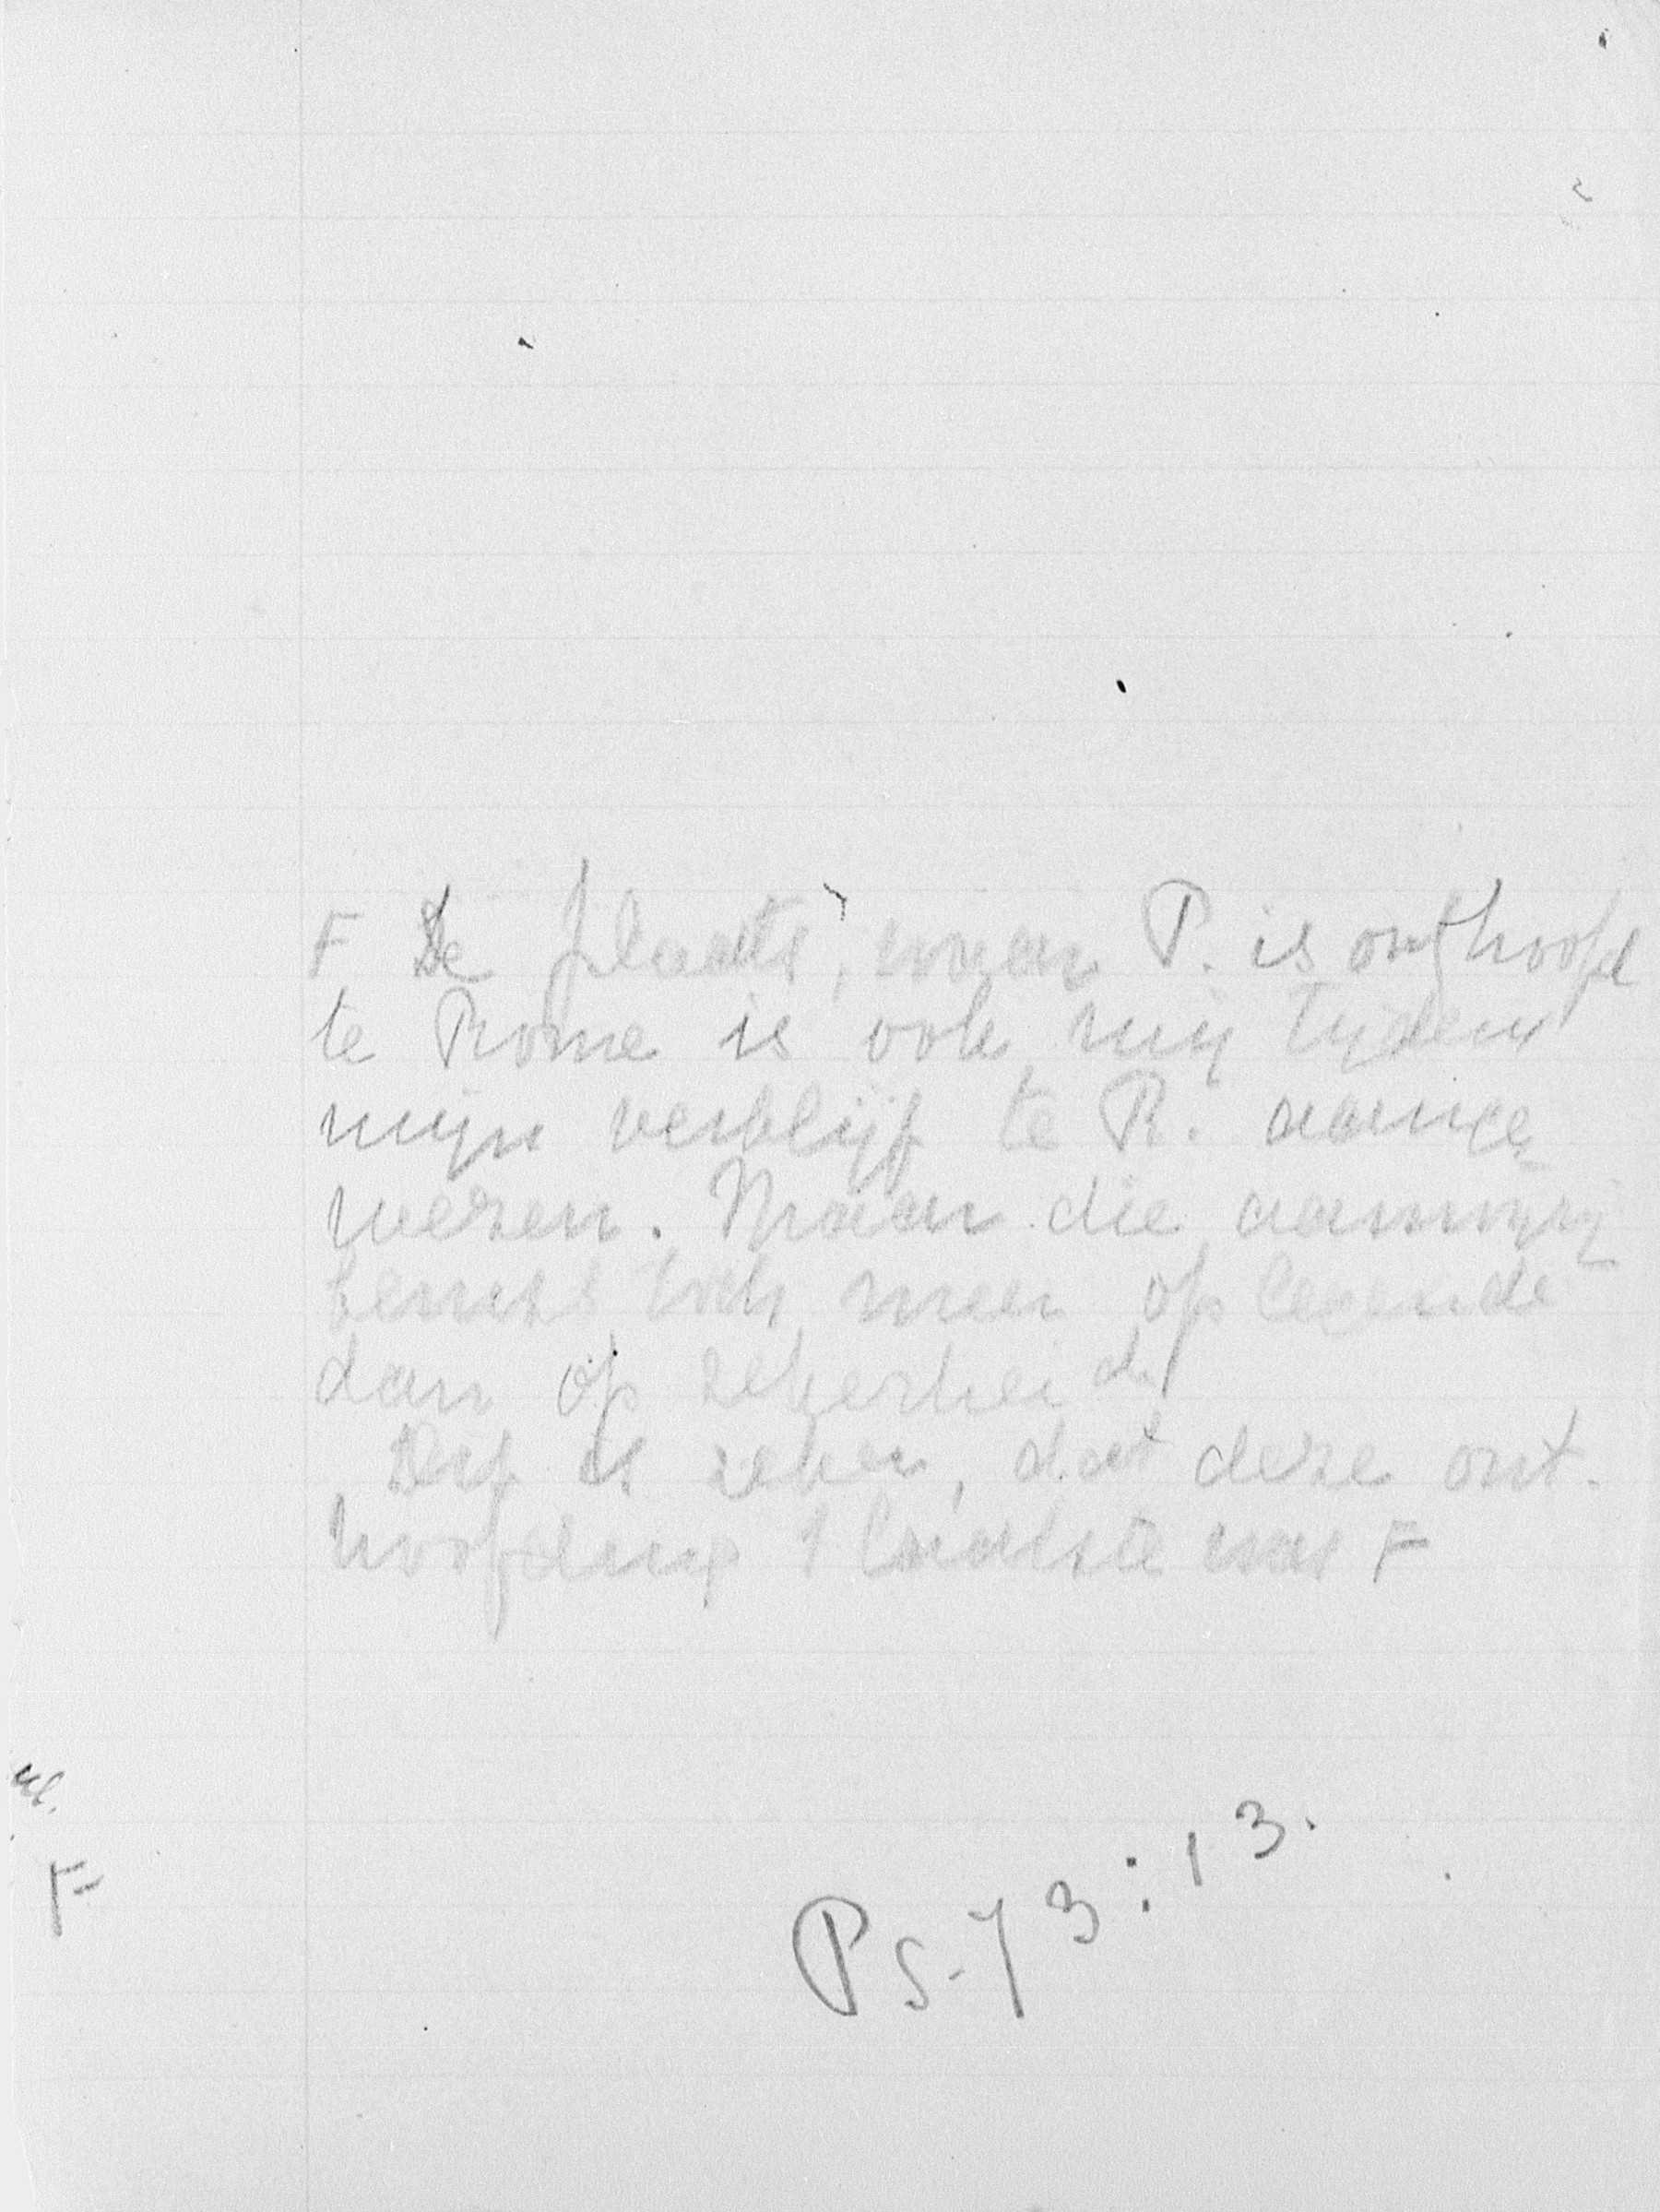 F De plaats, waar P. is onthoofd
te Rome is ook mij tijdens
mijn verblijf te R. aange-
wezen. Maar die aanwijz
berust toch meer op legende
dan op zekerheid.
is zeker, dat deze ont-
hoofding 't laatste was F
F
Ps. 73:13.